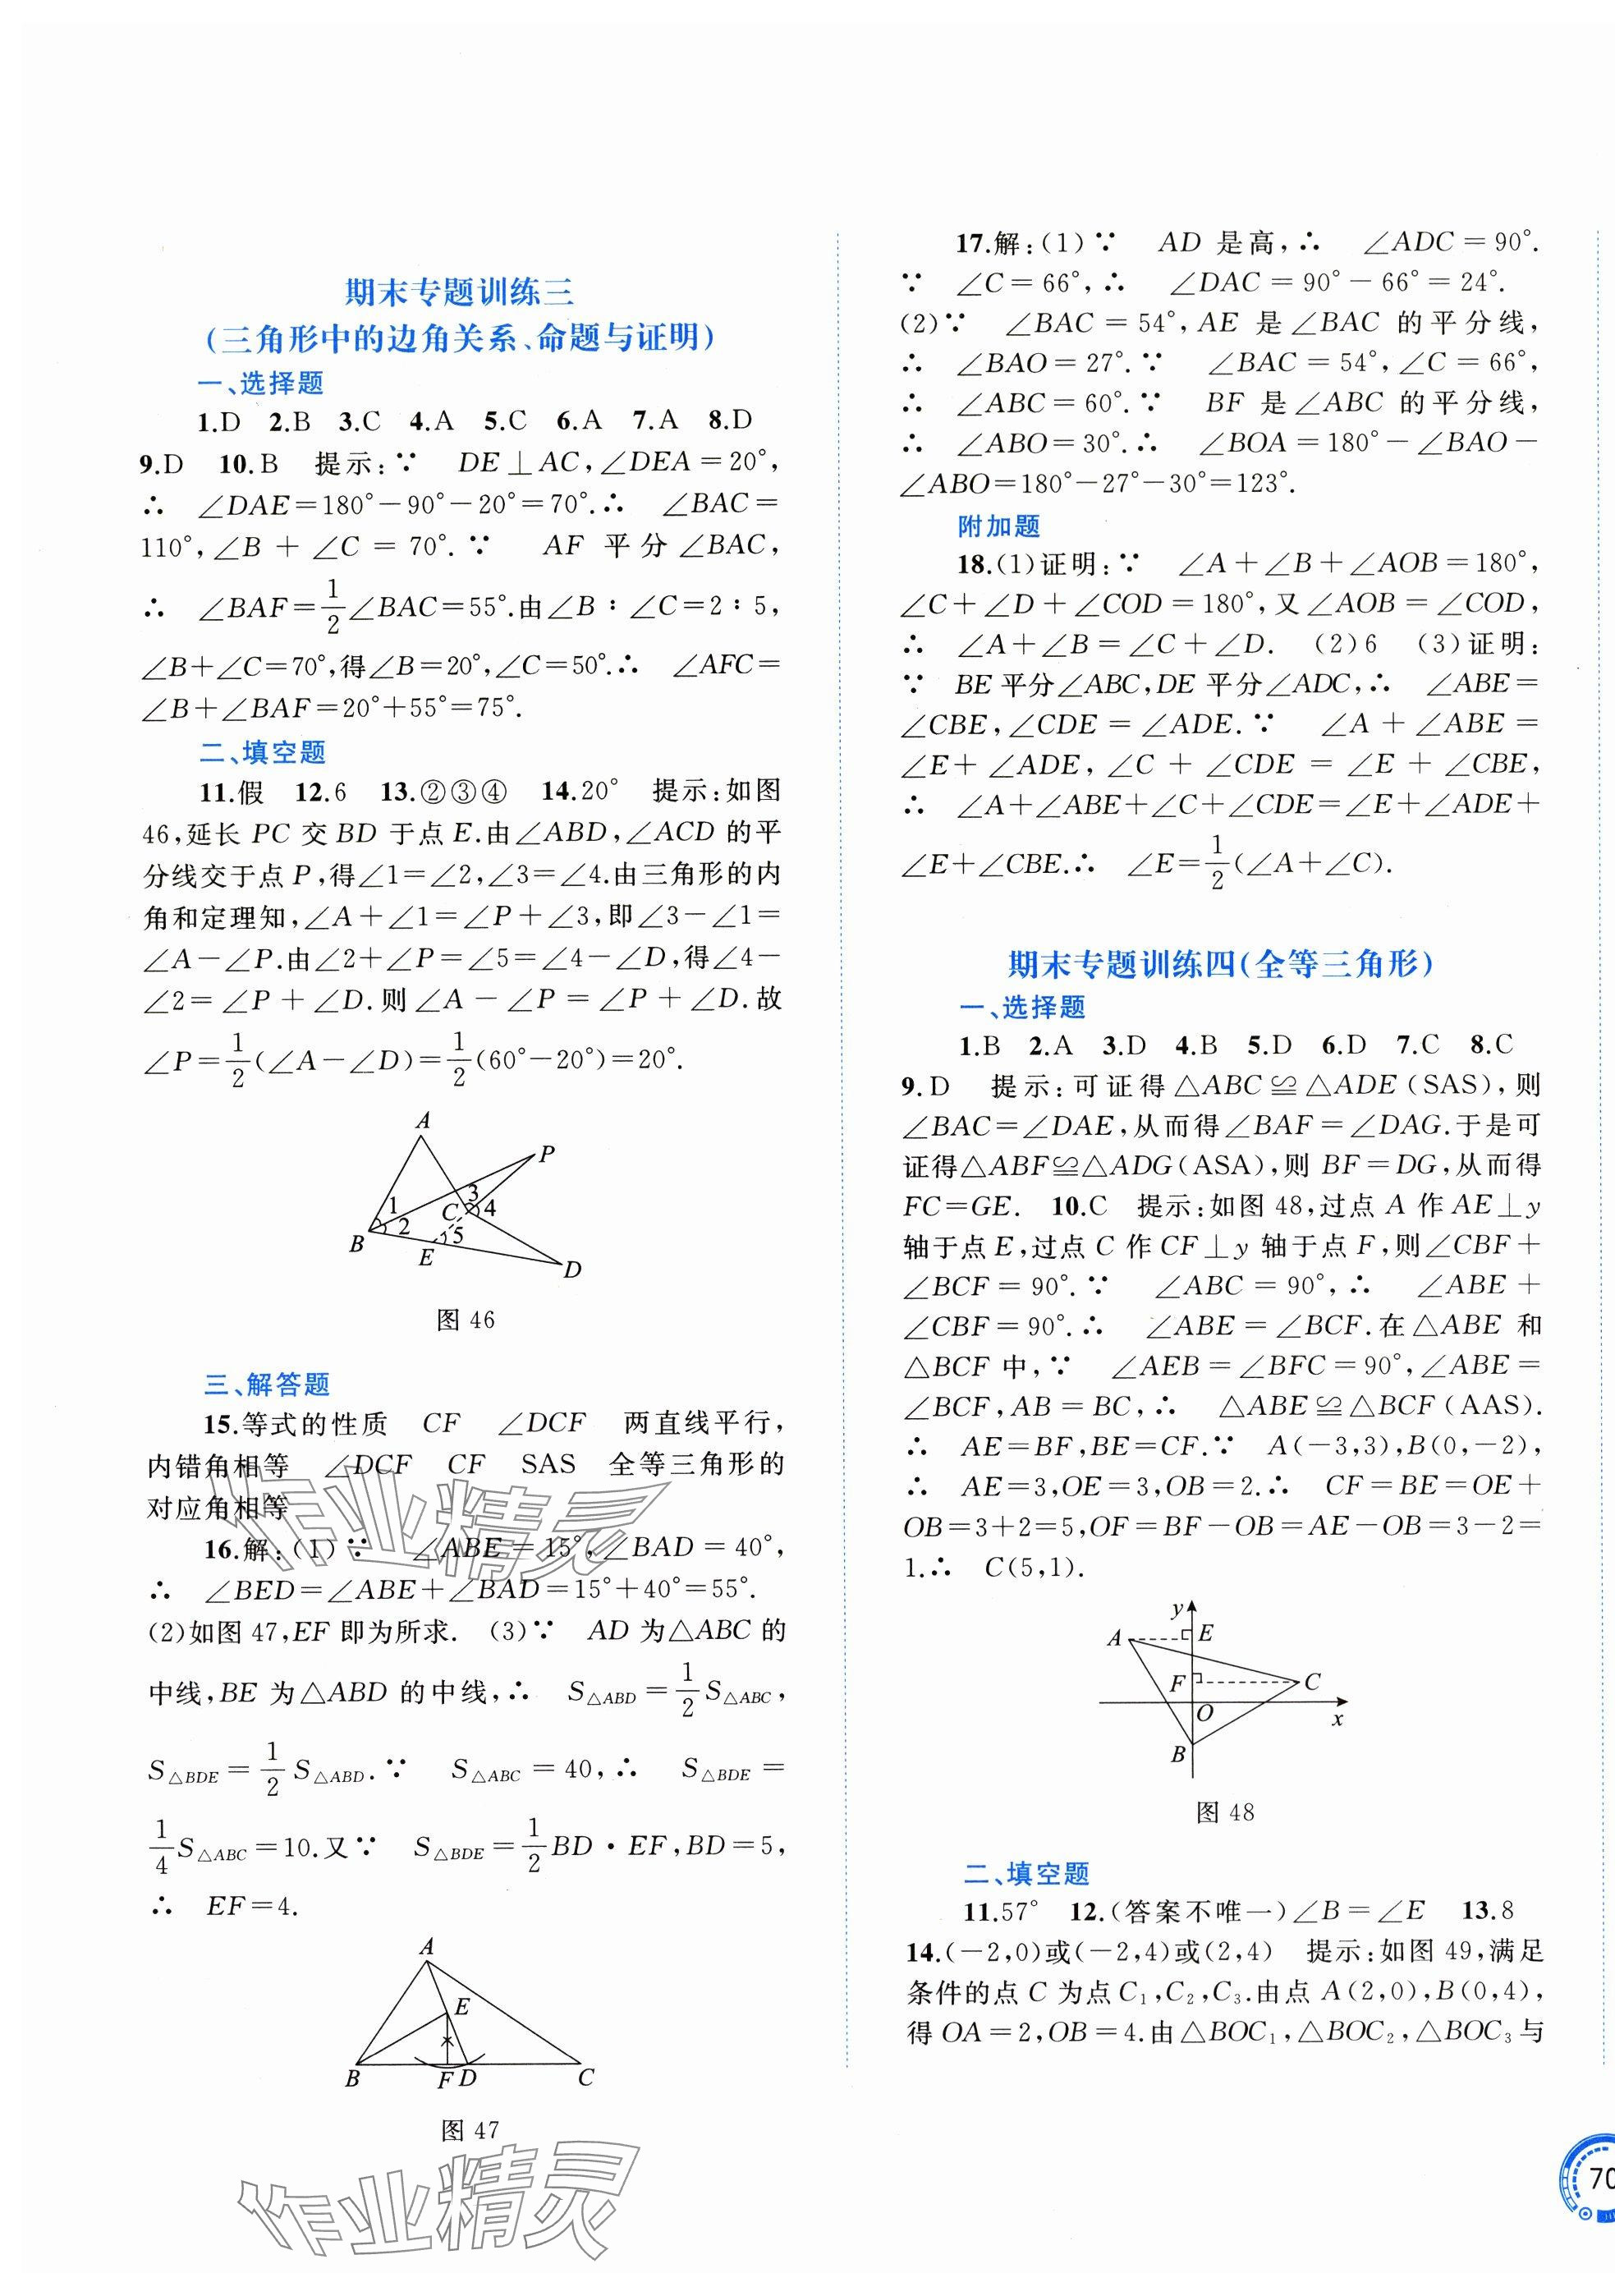 期末专题训练三
(三角形中的边角关系、命题与证明)
一、选择题
1.D 2.B 3.C 4.A 5.C 6.A 7.A 8.D
9.D 10.B 提示:∵ DE⊥AC,∠DEA=20°,
∴ ∠DAE=180°-90°-20°=70°.∴ ∠BAC=
110°,∠B+∠C=70°.∵ AF 平分∠BAC,
∴ ∠BAF=1/2∠BAC=55°.由∠B∶∠C=2∶5,
∠B+∠C=70°,得∠B=20°,∠C=50°.∴ ∠AFC=
∠B+∠BAF=20°+55°=75°.
二、填空题
11.假 12.6 13.②③④ 14.20° 提示:如图
46,延长 PC 交 BD 于点 E.由∠ABD,∠ACD 的平
分线交于点 P,得∠1=∠2,∠3=∠4.由三角形的内
角和定理知,∠A+∠1=∠P+∠3,即∠3-∠1=
∠A-∠P.由∠2+∠P=∠5=∠4-∠D,得∠4-
∠2=∠P+∠D.则∠A-∠P=∠P+∠D.故
∠P=1/2(∠A-∠D)=1/2(60°-20°)=20°.
A
P
3
1
C
4
2
5
B
E
D
图 46
三、解答题
15.等式的性质 CF ∠DCF 两直线平行,
内错角相等 ∠DCF CF SAS 全等三角形的
对应角相等
16.解:(1)∵ ∠ABE=15°,∠BAD=40°,
∴ ∠BED=∠ABE+∠BAD=15°+40°=55°.
(2)如图 47,EF 即为所求. (3)∵ AD 为△ABC 的
中线,BE 为△ABD 的中线,∴ S△ABD=1/2S△ABC,
S△BDE=1/2S△ABD.∵ S△ABC=40,∴ S△BDE=
1/4S△ABC=10.又∵ S△BDE=1/2BD·EF,BD=5,
∴ EF=4.
A
E
B
F
D
C
图 47
作业精灵
作业精灵
17.解:(1)∵ AD 是高,∴ ∠ADC=90°.
∵ ∠C=66°,∴ ∠DAC=90°-66°=24°.
(2)∵ ∠BAC=54°,AE 是∠BAC 的平分线,
∴ ∠BAO=27°.∵ ∠BAC=54°,∠C=66°,
∴ ∠ABC=60°.∵ BF 是∠ABC 的平分线,
∴ ∠ABO=30°.∴ ∠BOA=180°-∠BAO-
∠ABO=180°-27°-30°=123°.
附加题
18.(1)证明:∵ ∠A+∠B+∠AOB=180°,
∠C+∠D+∠COD=180°,又∠AOB=∠COD,
∴ ∠A+∠B=∠C+∠D. (2)6 (3)证明:
∵ BE 平分∠ABC,DE 平分∠ADC,∴ ∠ABE=
∠CBE,∠CDE=∠ADE.∵ ∠A+∠ABE=
∠E+∠ADE,∠C+∠CDE=∠E+∠CBE,
∴ ∠A+∠ABE+∠C+∠CDE=∠E+∠ADE+
∠E+∠CBE.∴ ∠E=1/2(∠A+∠C).
期末专题训练四(全等三角形)
一、选择题
1.B 2.A 3.D 4.B 5.D 6.D 7.C 8.C
9.D 提示:可证得△ABC≌△ADE(SAS),则
∠BAC=∠DAE,从而得∠BAF=∠DAG.于是可
证得△ABF≌△ADG(ASA),则 BF=DG,从而得
FC=GE. 10.C 提示:如图 48,过点 A 作 AE⊥y
轴于点 E,过点 C 作 CF⊥y 轴于点 F,则∠CBF+
∠BCF=90°.∵ ∠ABC=90°,∴ ∠ABE+
∠CBF=90°.∴ ∠ABE=∠BCF.在△ABE 和
△BCF 中,∵ ∠AEB=∠BFC=90°,∠ABE=
∠BCF,AB=BC,∴ △ABE≌△BCF(AAS).
∴ AE=BF,BE=CF.∵ A(-3,3),B(0,-2),
∴ AE=3,OE=3,OB=2.∴ CF=BE=OE+
OB=3+2=5,OF=BF-OB=AE-OB=3-2=
1.∴ C(5,1).
y
A
E
F
C
O
x
B
图 48
二、填空题
11.57° 12.(答案不唯一)∠B=∠E 13.8
14.(-2,0)或(-2,4)或(2,4) 提示:如图 49,满足
条件的点 C 为点 C1,C2,C3.由点 A(2,0),B(0,4),
得 OA=2,OB=4.由△BOC1,△BOC2,△BOC3与
70